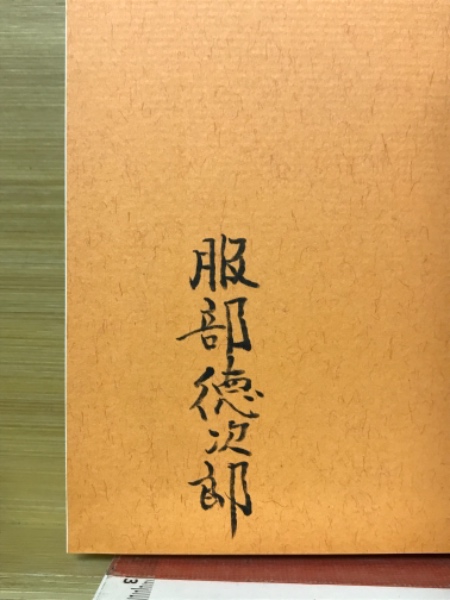 服部徳次郎
3